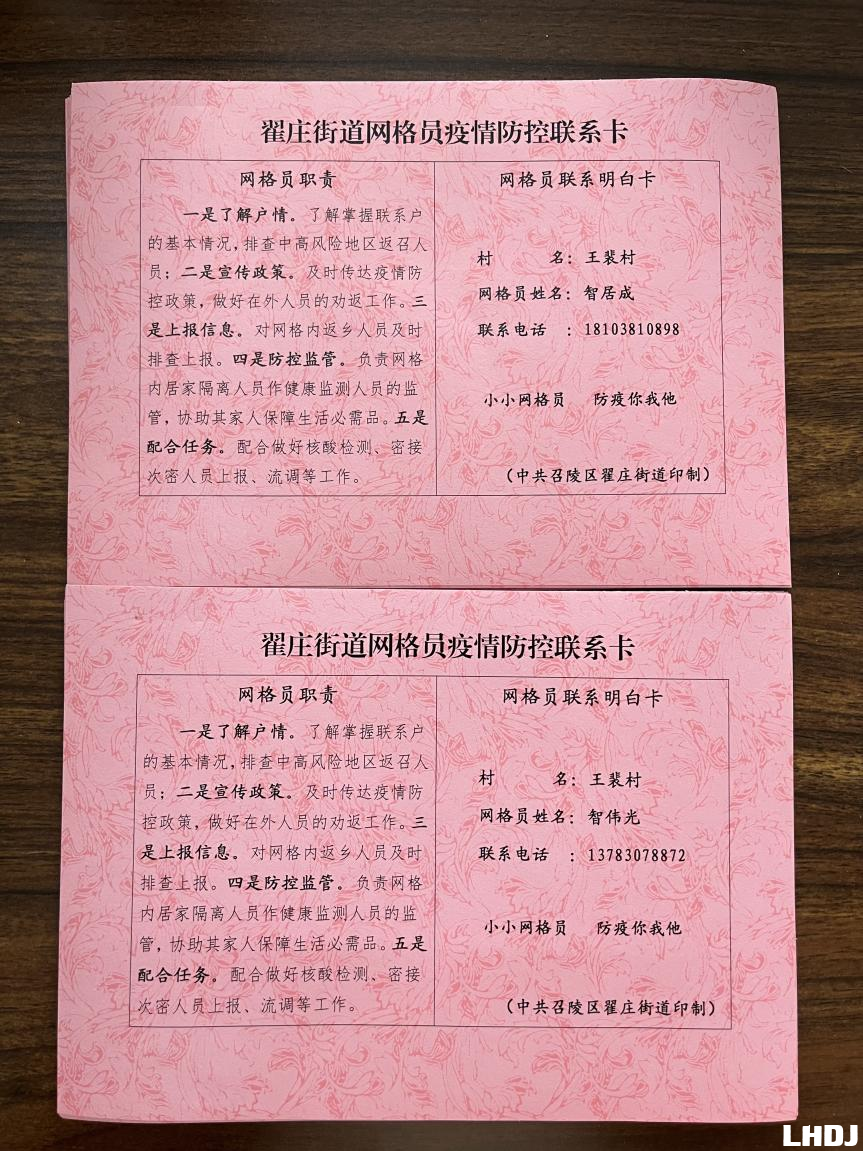 翟庄街道网格员疫情防控联系卡
网格员职责
一是了解户情。了解掌握联系户
的基本情况，排查中高风险地区返召人
员；二是宣传政策。及时传达疫情防
控政策，做好在外人员的劝返工作。三
是上报信息。对网格内返乡人员及时
排查上报。四是防控监管。负责网格
内居家隔离人员作健康监测人员的监
管，协助其家人保障生活必需品。五是
配合任务。配合做好核酸检测、密接
次密人员上报、流调等工作。
网格员联系明白卡
村 名：王裴村
网格员姓名：智居成
联系电话 ：18103810898
小小网格员 防疫你我他
（中共召陵区翟庄街道印制）
翟庄街道网格员疫情防控联系卡
网格员职责
一是了解户情。了解掌握联系户
的基本情况，排查中高风险地区返召人
员；二是宣传政策。及时传达疫情防
控政策，做好在外人员的劝返工作。三
是上报信息。对网格内返乡人员及时
排查上报。四是防控监管。负责网格
内居家隔离人员作健康监测人员的监
管，协助其家人保障生活必需品。五是
配合任务。配合做好核酸检测、密接
次密人员上报、流调等工作。
网格员联系明白卡
村 名：王裴村
网格员姓名：智伟光
联系电话 ：13783078872
小小网格员 防疫你我他
（中共召陵区翟庄街道印制）
LHDJ